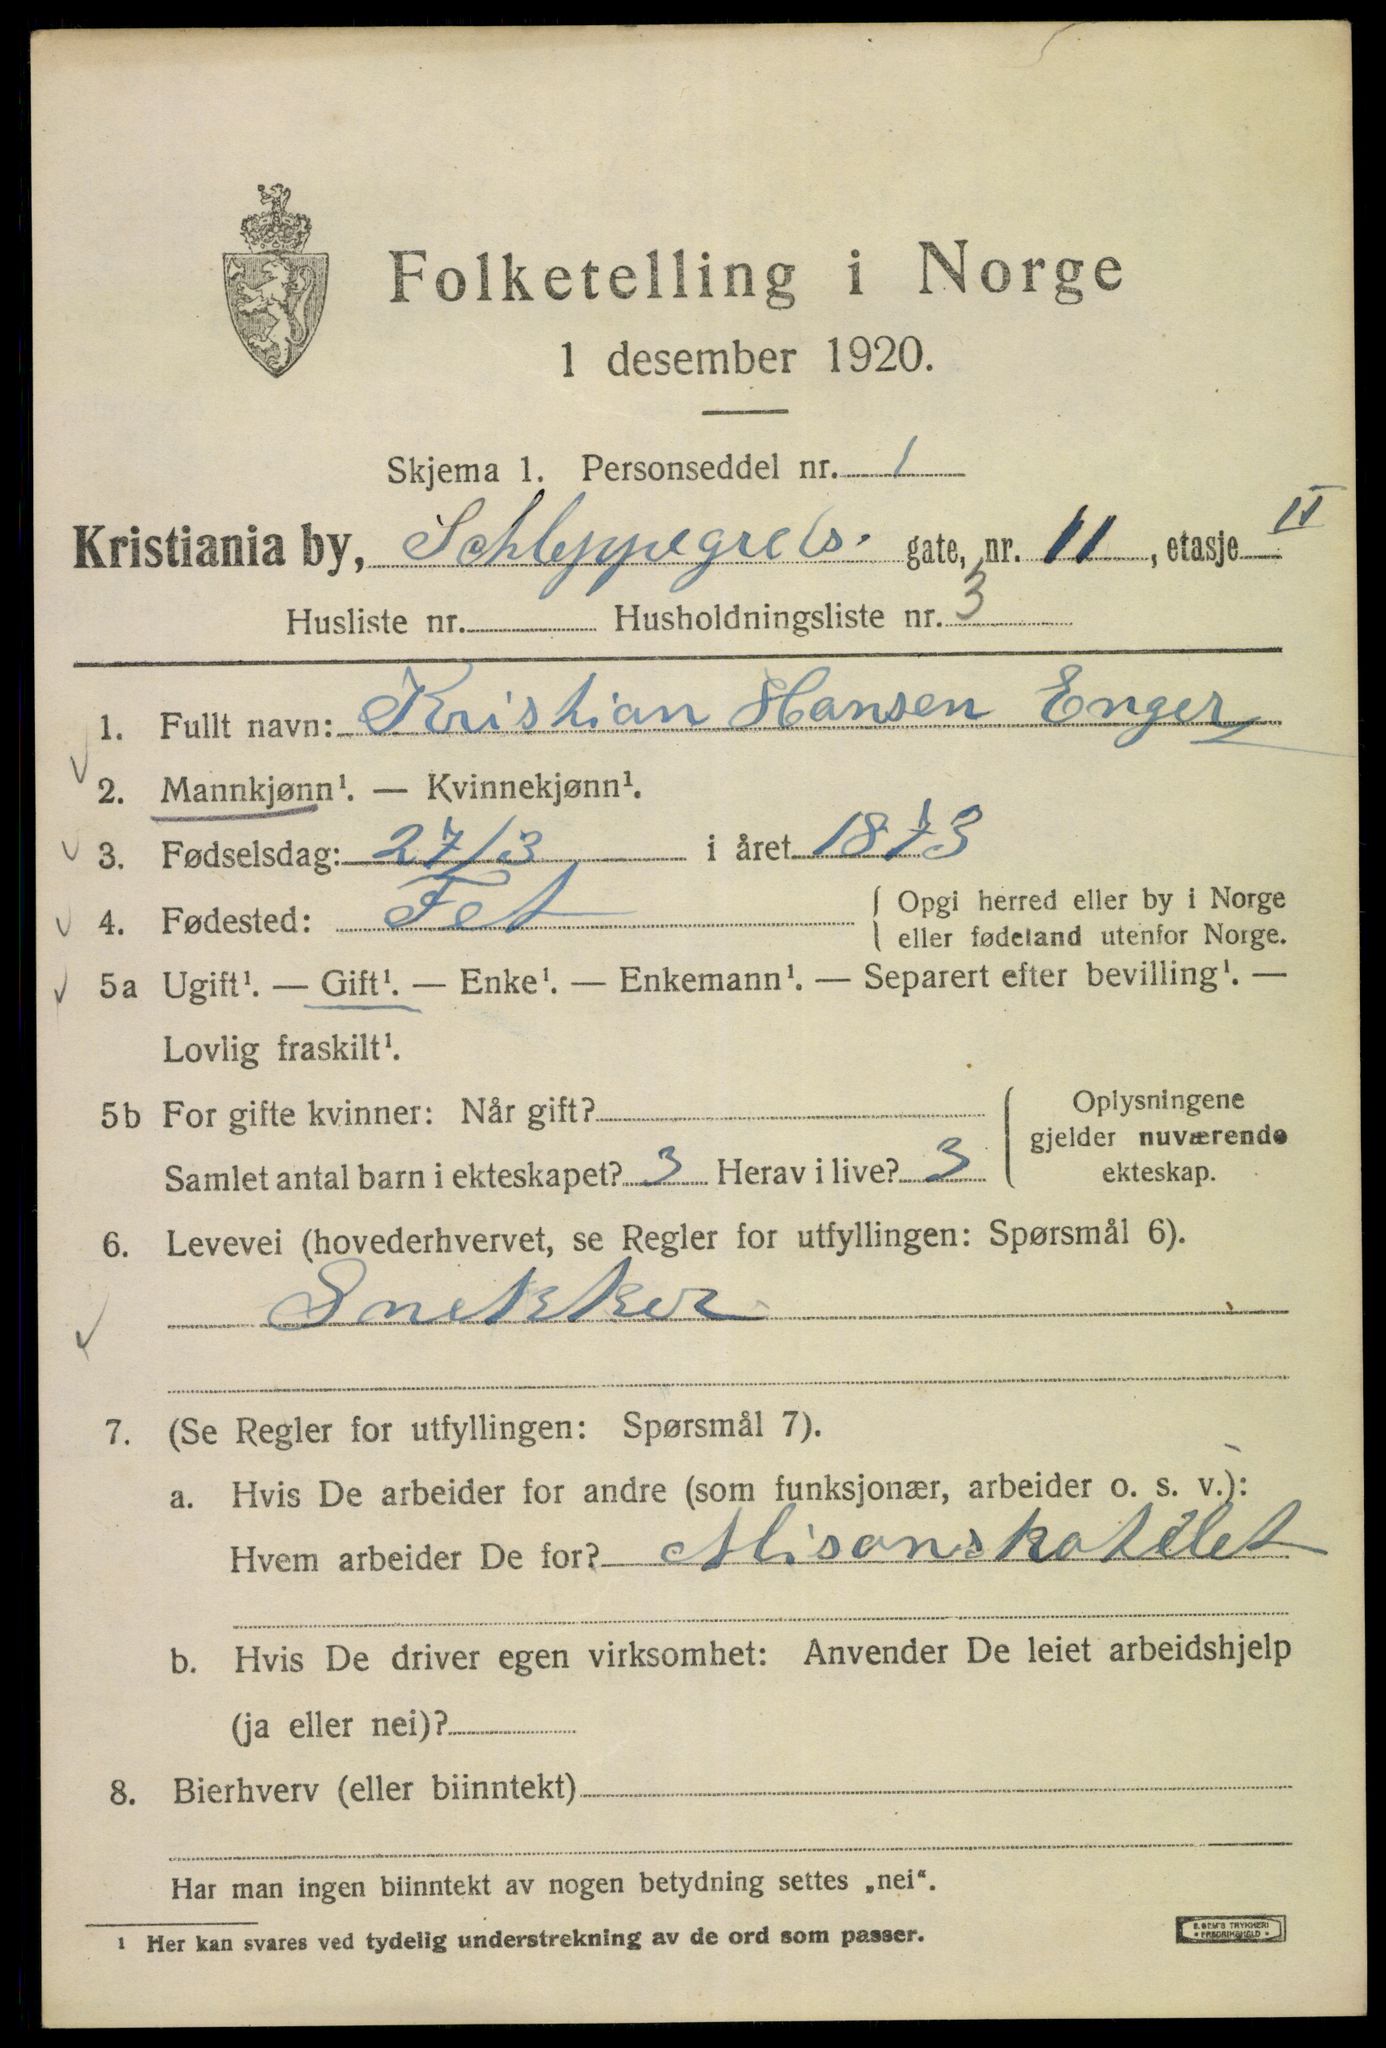 Folketelling i Norge
1 desember 1920.
Skjema 1. Personseddel nr. 1
Kristiania by, Schleppegrels. gate, nr. 11, etasje II
Husliste nr. Husholdningsliste nr. 3
1. Fullt navn: Kristian Hansen Enger
2. Mannkjønn¹. — Kvinnekjønn¹.
3. Fødselsdag: 27/3 i året 1873
4. Fødested: Fet { Opgi herred eller by i Norge
eller fødeland utenfor Norge.
5a Ugift¹. — Gift¹. — Enke¹. — Enkemann¹. — Separert efter bevilling¹. —
Lovlig fraskilt¹.
5b For gifte kvinner: Når gift? { Oplysningene
gjelder nuværende
Samlet antal barn i ekteskapet? 3 Herav i live? 3 ekteskap.
6. Levevei (hovederhvervet, se Regler for utfyllingen: Spørsmål 6).
Snekker
7. (Se Regler for utfyllingen: Spørsmål 7).
a. Hvis De arbeider for andre (som funksjonær, arbeider o. s. v.):
Hvem arbeider De for?
b. Hvis De driver egen virksomhet: Anvender De leiet arbeidshjelp
(ja eller nei)?
8. Bierhverv (eller biinntekt)
Har man ingen biinntekt av nogen betydning settes „nei“.
¹ Her kan svares ved tydelig understrekning av de ord som passer.
TRYKKERI
FREDRIKSHALD